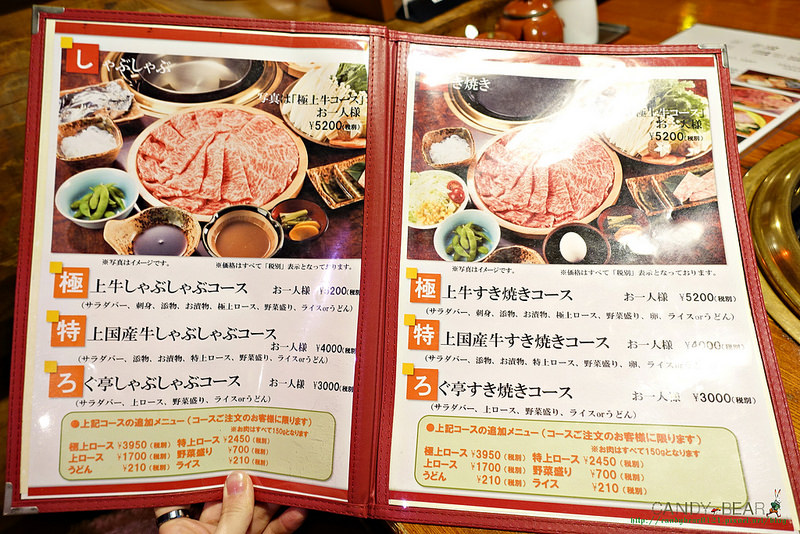 しゃぶしゃぶ
写真は「極上牛コース」
お一人様
¥5200(税別)
※写真はイメージです。
※価格はすべて「税別」表示となっております。
極上牛しゃぶしゃぶコース お一人様 ¥5200(税別)
(サラダバー、刺身、添物、お漬物、極上ロース、野菜盛り、ライスorうどん)
特上国産牛しゃぶしゃぶコース お一人様 ¥4000(税別)
(サラダバー、添物、お漬物、特上ロース、野菜盛り、ライスorうどん)
ろぐ亭しゃぶしゃぶコース お一人様 ¥3000(税別)
(サラダバー、上ロース、野菜盛り、ライスorうどん)
●上記コースの追加メニュー(コースご注文のお客様に限ります)
※お肉はすべて150gとなります
極上ロース ¥3950(税別) 特上ロース ¥2450(税別)
上ロース ¥1700(税別) 野菜盛り ¥700(税別)
うどん ¥210(税別) ライス ¥210(税別)
き焼き
極上牛コース」
お一人様
¥5200(税別)
※写真はイメージです。
※価格はすべて「税別」表示となっております。
極上牛すき焼きコース お一人様 ¥5200(税別)
(サラダバー、刺身、添物、お漬物、極上ロース、野菜盛り、卵、ライスorうどん)
特上国産牛すき焼きコース お一人様 ¥4000(税別)
(サラダバー、添物、お漬物、特上ロース、野菜盛り、卵、ライスorうどん)
ろぐ亭すき焼きコース お一人様 ¥3000(税別)
(サラダバー、上ロース、野菜盛り、卵、ライスorうどん)
●上記コースの追加メニュー(コースご注文のお客様に限ります)
※お肉はすべて150gとなります
極上ロース ¥3950(税別) 特上ロース ¥2450(税別)
上ロース ¥1700(税別) 野菜盛り ¥700(税別)
うどん ¥210(税別) ライス ¥210(税別)
CANDY BEAR